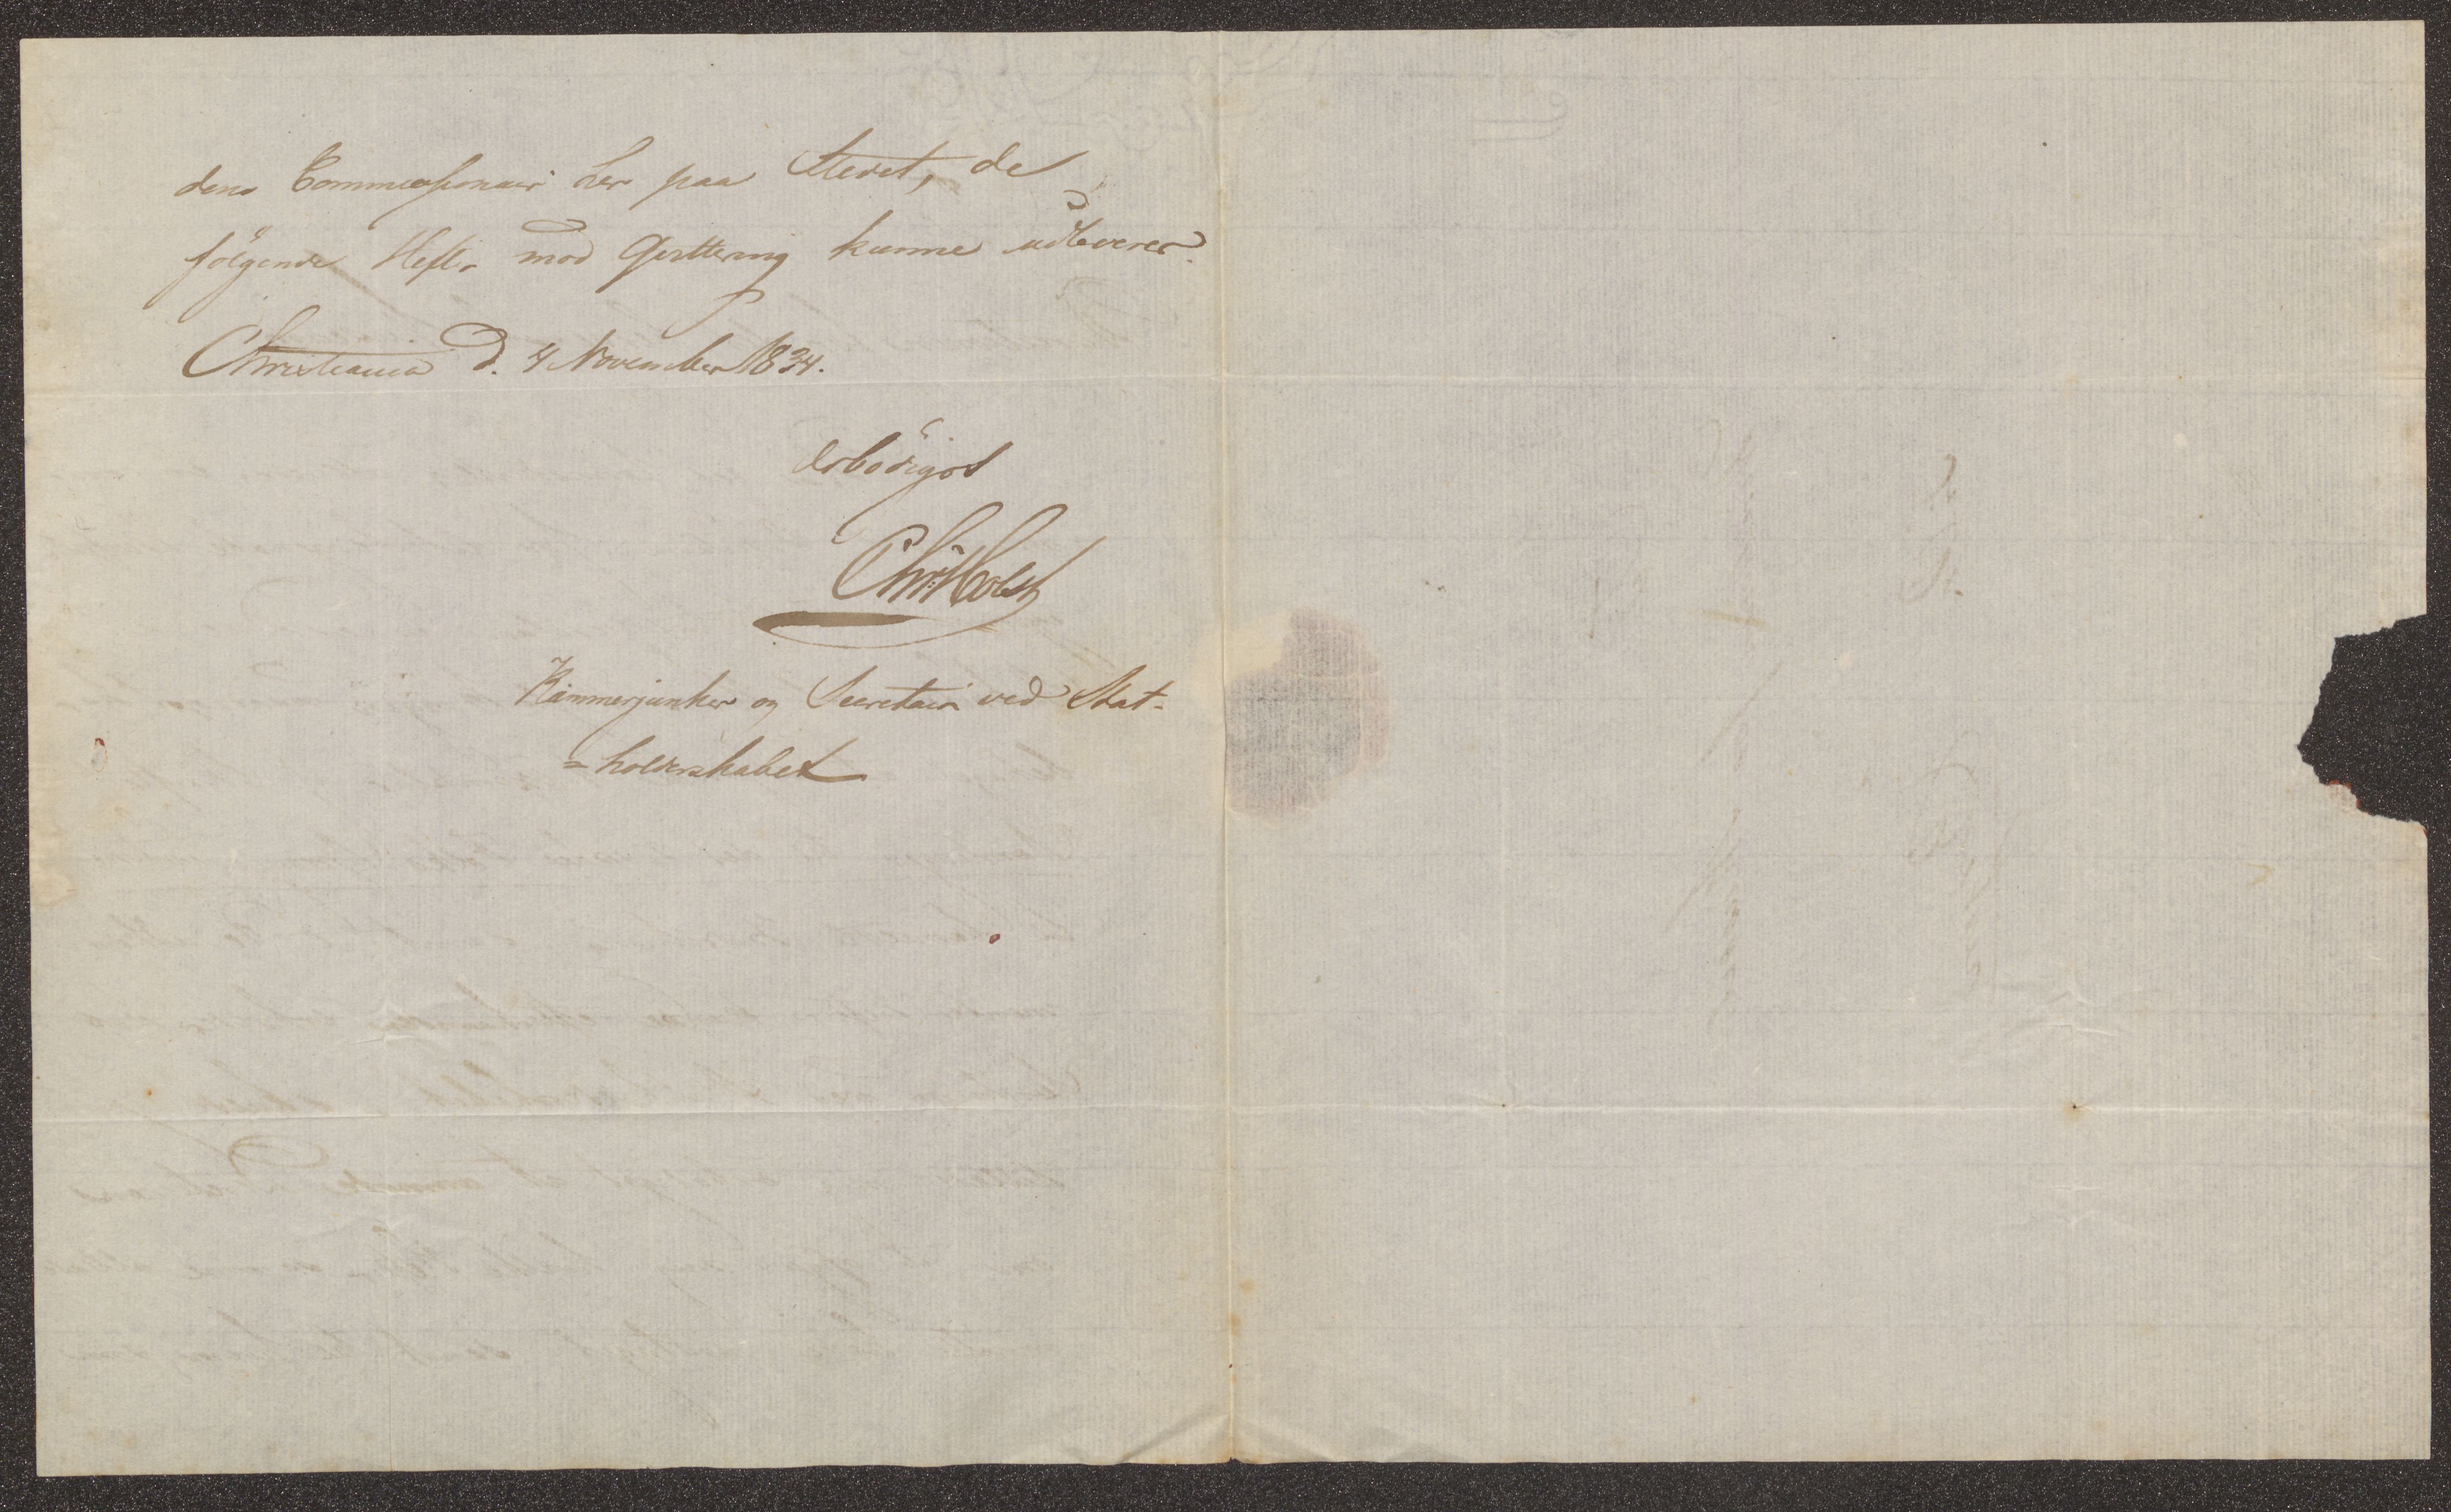 dens Commissionair her paa Stedet, de
følgende Hefter mod Qvittering kunne udleveres.
Christiania d. 4 November 1834.
Erbødigst
Chr: Holst
Kammerjunker og Secretair ved Stat-
=holderskabet